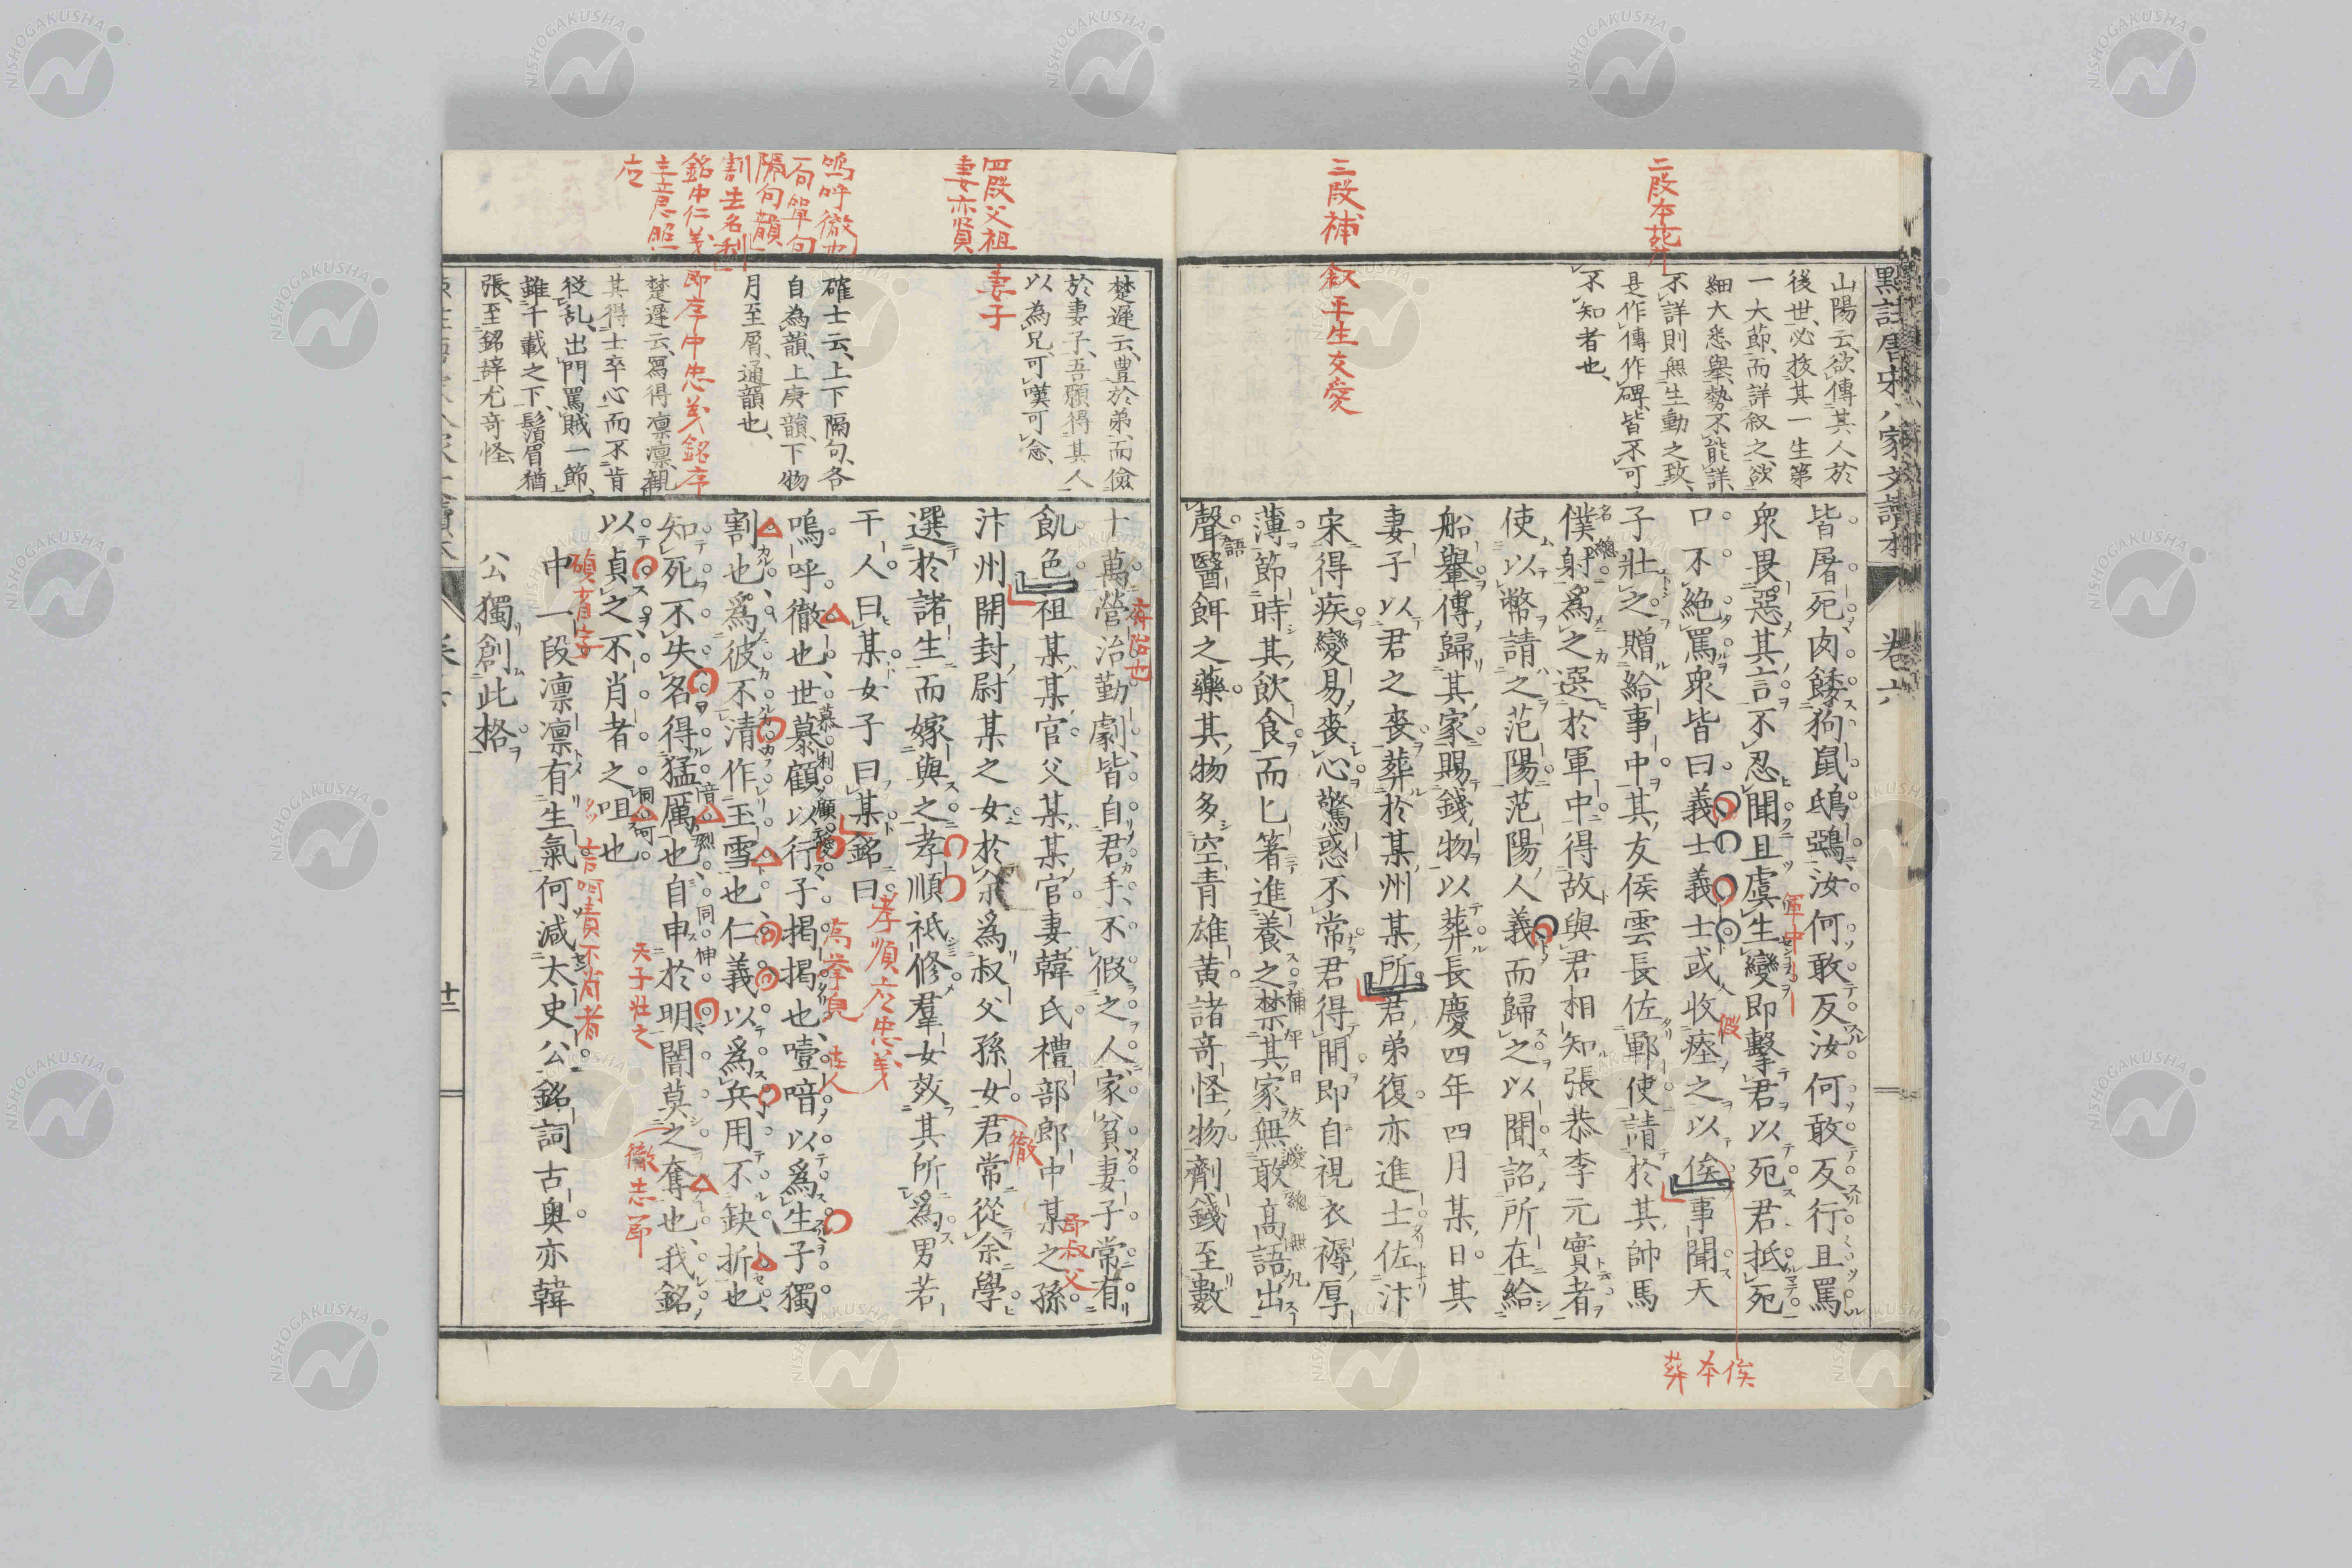 二段本葬
三段補
叙平生友愛
點註唐宋八家文讀本 卷六
山陽云、欲傳其人於
後世、必抜其一生第
一大節、而詳叙之、欲
細大悉舉、勢不能詳、
不詳則無生動之致、
是作傳作碑、皆不可
不知者也、
皆屠死肉餧狗鼠鴟鵶汝何敢反汝何敢反行且罵
衆畏惡其言不忍聞且虞生變即擊君以死君抵死
口不絕罵衆皆曰義士義士或收瘞之以俟事聞天
子壯之贈給事中其友侯雲長佐鄆使請於其帥馬
僕射爲之選於軍中得故與君相知張恭李元實者
使以幣請之范陽范陽人義而歸之以聞詔所在給
船轝傳歸其家賜錢物以葬長慶四年四月某日其
妻子以君之喪葬於某州某所君弟復亦進士佐汴
宋得疾變易喪心驚惑不常君得閒即自視衣褥厚
薄節時其飲食而匕箸進養之禁其家無敢高語出
聲醫餌之藥其物多空青雄黃諸奇怪物劑錢至數
軍中
假
俟本葬
四段父祖
妻亦賢
妻子
嗚呼徹也
一句單句
隔句韻
割生名利
銘中仁義即序中忠義銘序
主意照
應
楚遲云、豊於弟、而儉
於妻子、吾願得其人
以爲兄、可嘆可念、
確士云、上下隔句、各
自爲韻、上庚韻、下物
月至屑、通韻也、
楚遲云、寫得凛凛、觀
其得士卒心而不肯
從乱、出門罵賊一節、
雖千載之下、鬚眉猶
張、至銘辞尤奇怪、
十萬營治勤劇皆自君手不假之人家貧妻子常有
飢色祖某某官父某某官妻韓氏禮部郎中某之孫
汴州開封尉某之女於余爲叔父孫女君常從余學
選於諸生而嫁與之孝順祗修羣女效其所爲男若
干人曰某女子曰某銘曰
嗚呼徹也世慕顧以行子揭揭也噎喑以爲生子獨
割也爲彼不清作玉雪也仁義以爲兵用不缺折也
知死不失名得猛厲也自申於明闇莫之奪也我銘
以貞之不肖者之呾也
中一段凛凛有生氣何減太史公銘詞古奥亦韓
公獨創此格
即叔父
徹
孝順應忠義
高挙皃
天子壯之
徹志節
十二